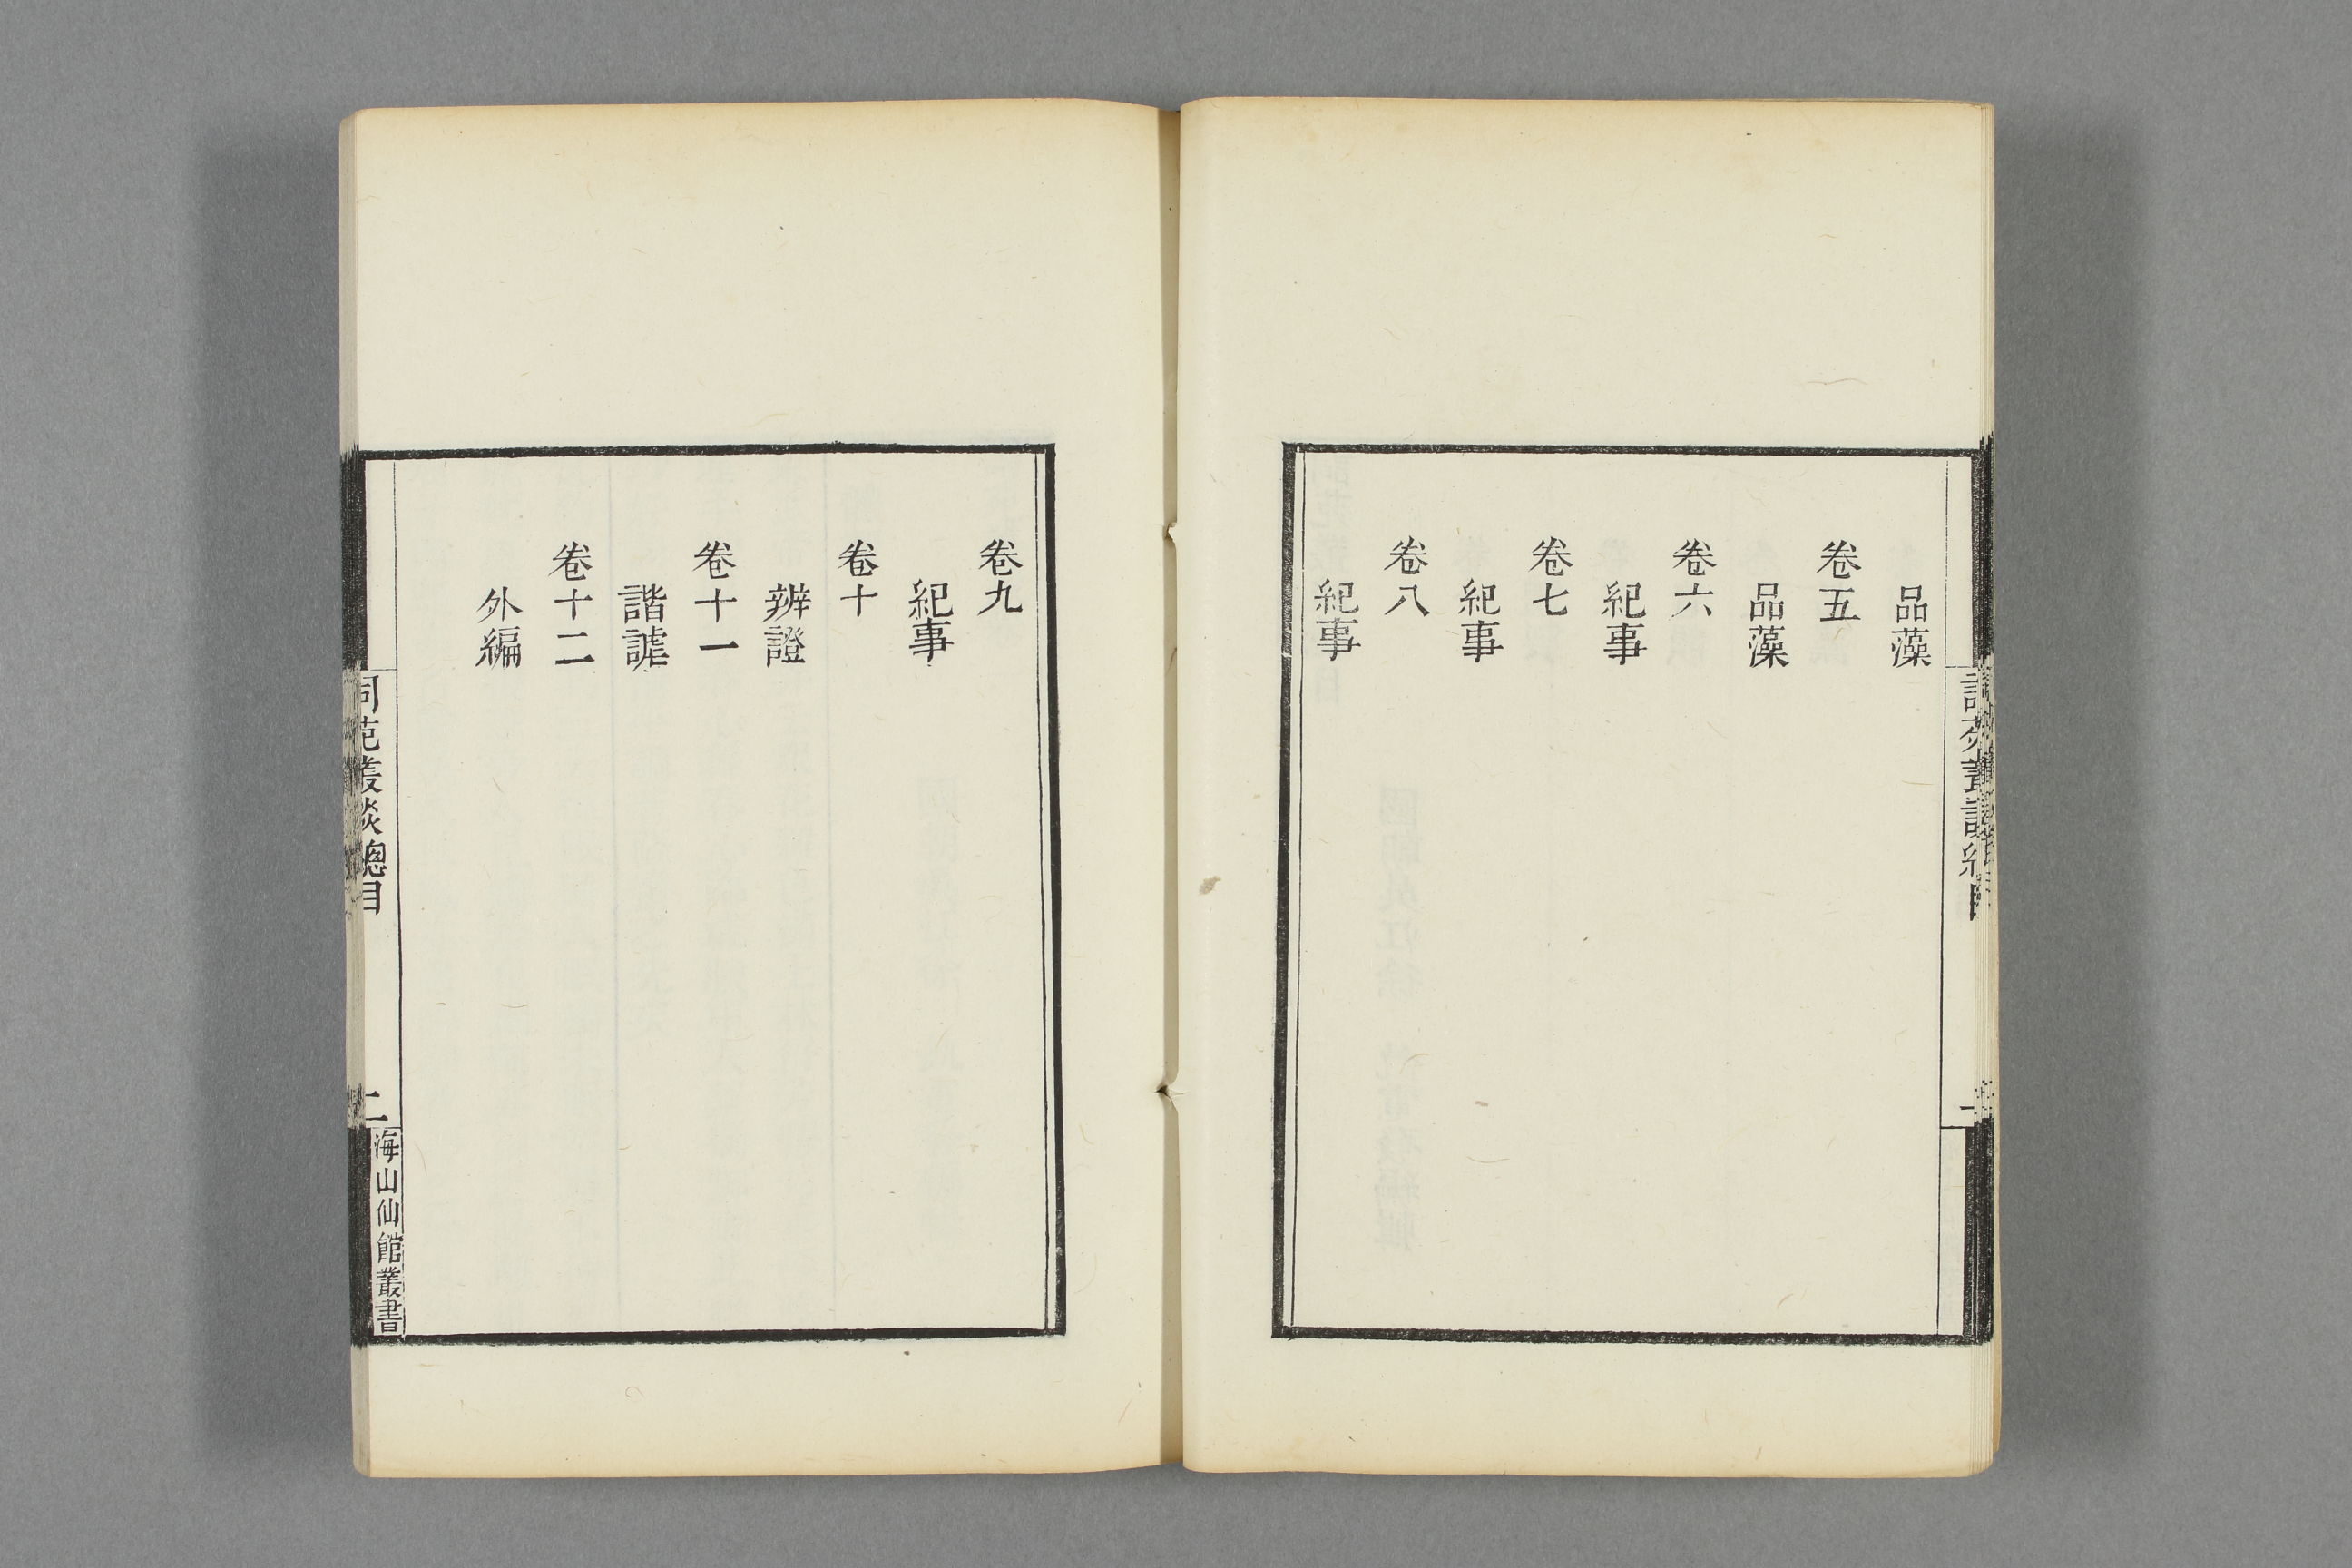 品藻
卷五
品藻
卷六
紀事
卷七
紀事
卷八
紀事
卷九
紀事
卷十
辨證
卷十一
諧謔
卷十二
外編
詞苑叢談總目
二
海山仙館叢書